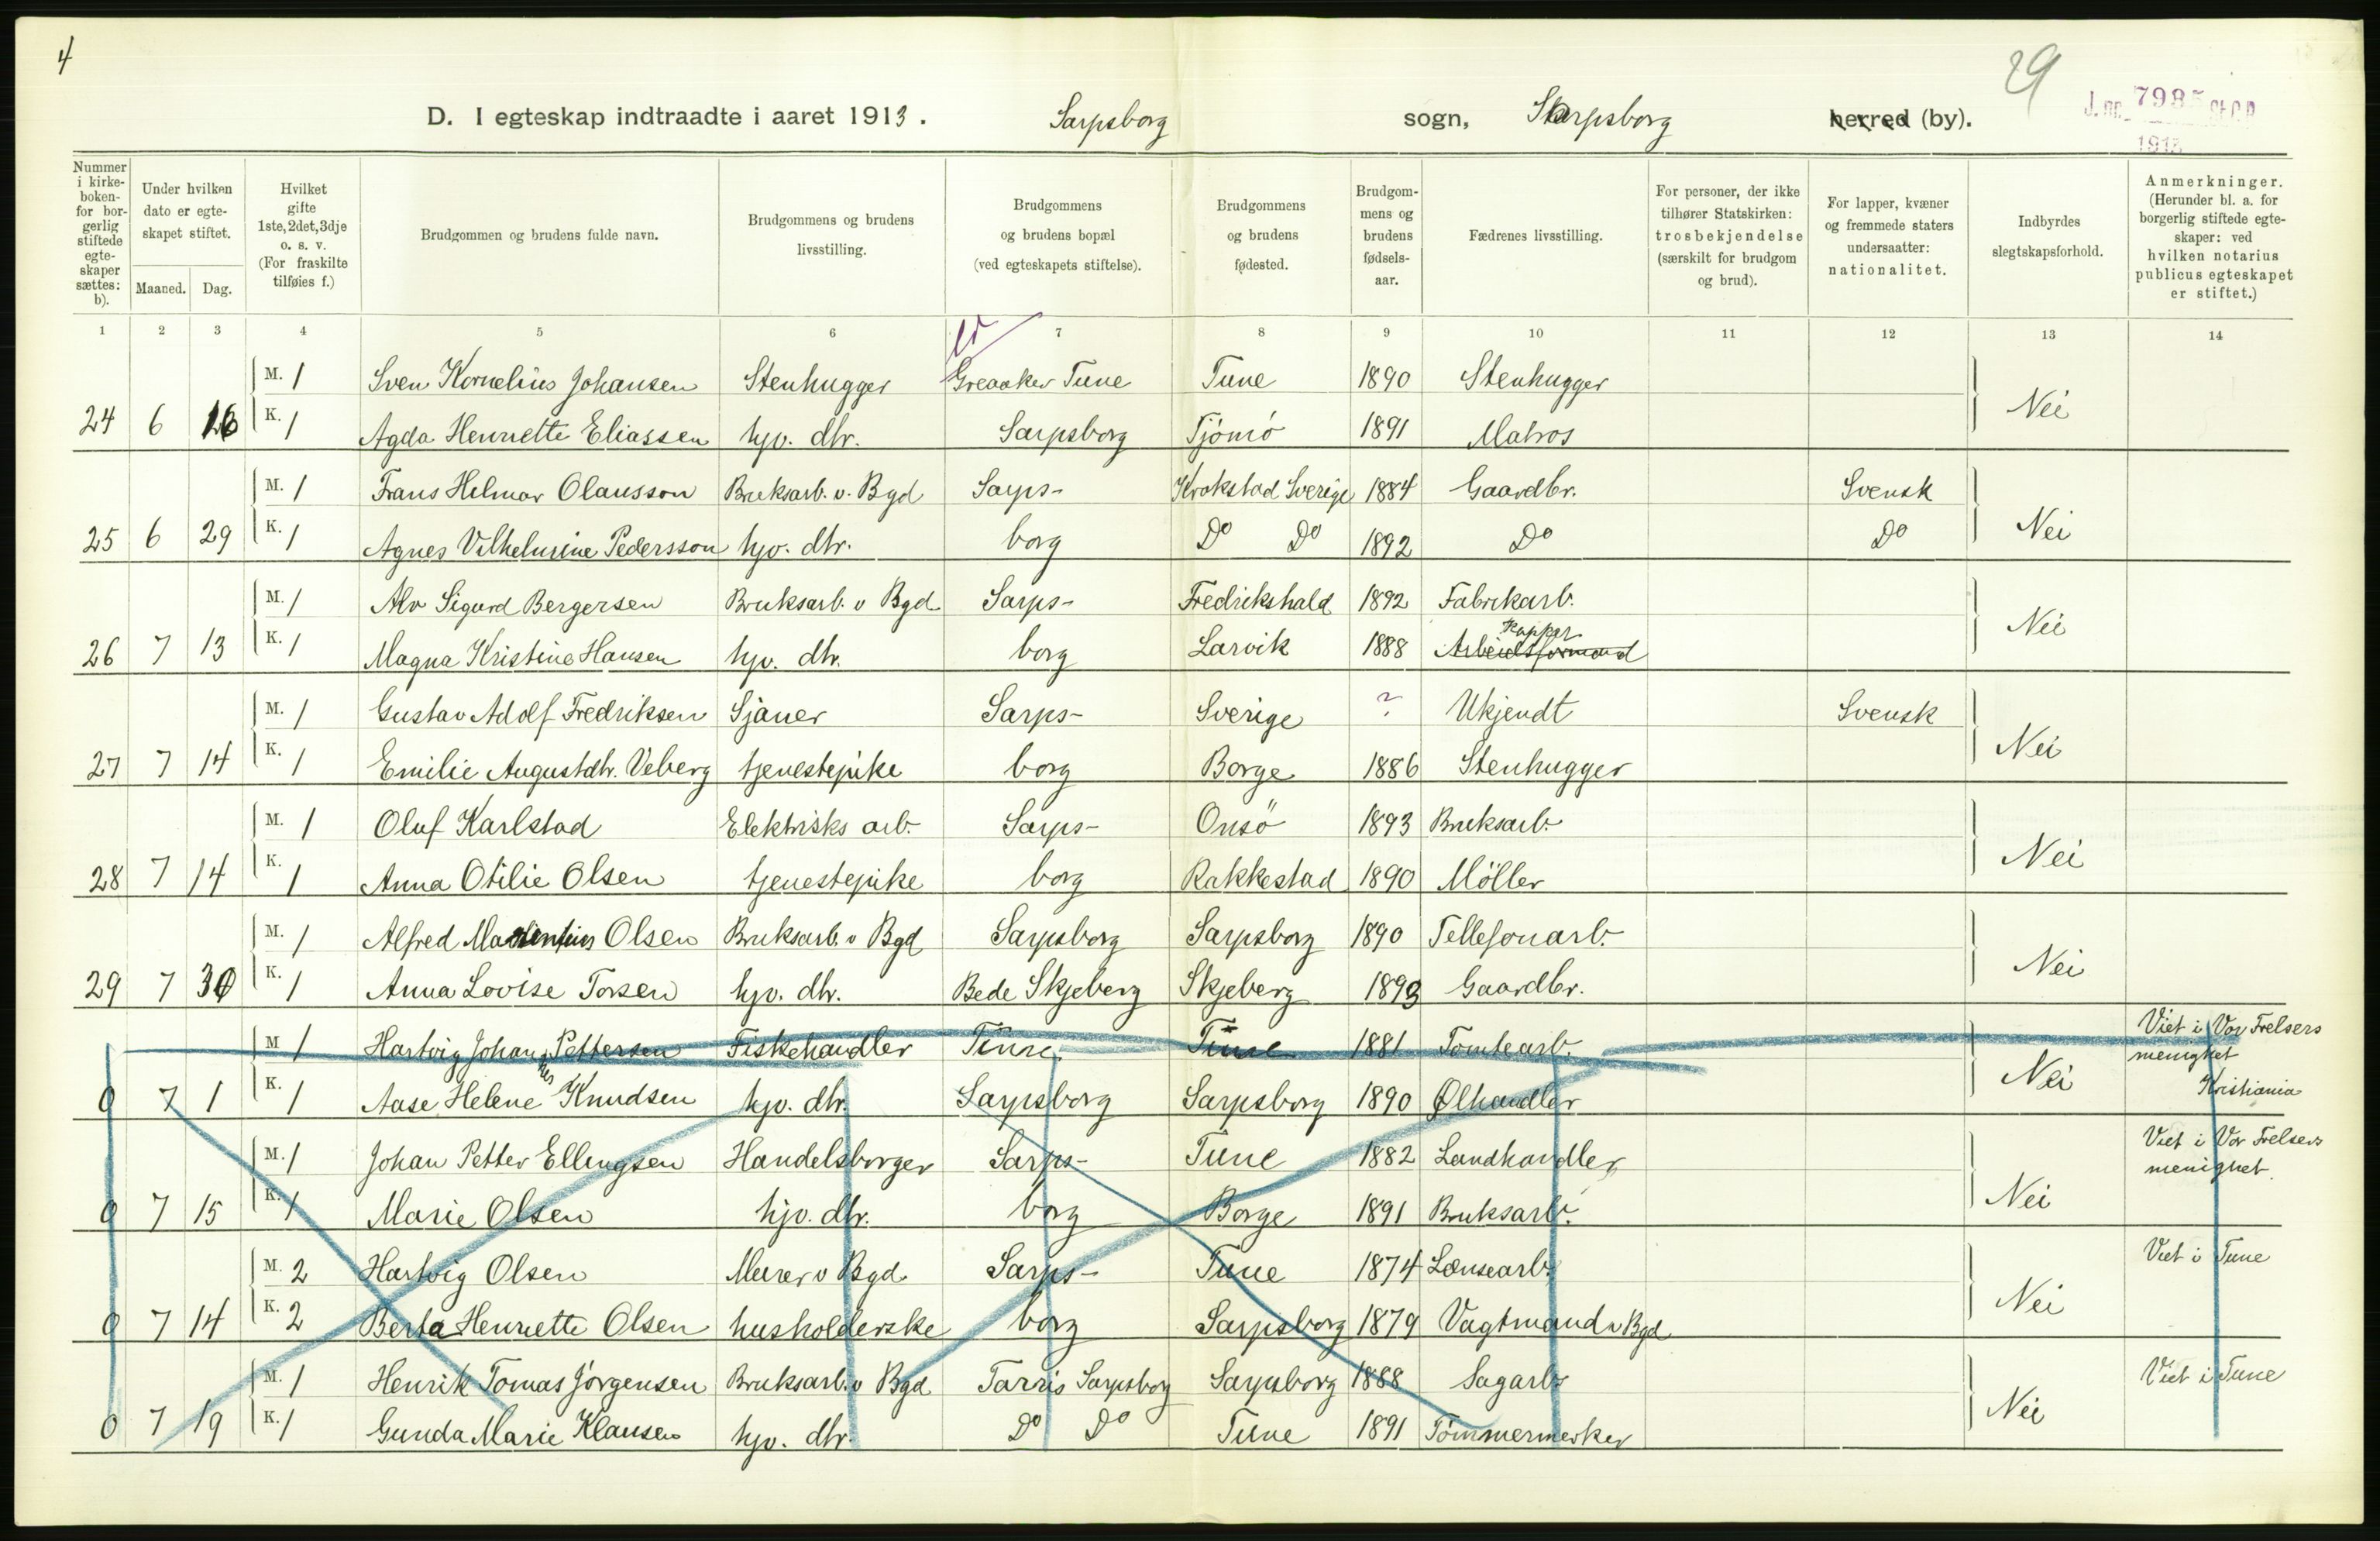 4
29
D. I egteskap indtraadte i aaret 1913. Sarpsborg sogn, Sarpsborg herred (by).
J. nr. 7985 St.C.B
1913
Nummer i kirke-boken- for bor-gerlig stiftede egte-skaper sættes: b).
Under hvilken dato er egte-skapet stiftet.
Maaned. Dag.
Hvilket gifte 1ste, 2det, 3dje o. s. v. (For fraskilte tilføies f.)
Brudgommen og brudens fulde navn.
Brudgommens og brudens livsstilling.
Brudgommens og brudens bopæl (ved egteskapets stiftelse).
Brudgommens og brudens fødested.
Brudgom-mens og brudens fødsels-aar.
Fædrenes livsstilling.
For personer, der ikke tilhører Statskirken: trosbekjendelse (særskilt for brudgom og brud).
For lapper, kvæner og fremmede staters undersaatter: nationalitet.
Indbyrdes slegtskapsforhold.
Anmerkninger. (Herunder bl. a. for borgerlig stiftede egte-skaper: ved hvilken notarius publicus egteskapet er stiftet.)
1 2 3 4 5 6 7 8 9 10 11 12 13 14
M. 1 Sven Kornelius Johansen Stenhugger Greaaker Tune Tune 1890 Stenhugger
24 6 16 K. 1 Agda Henriette Eliassen hjv. dtr. Sarpsborg Tjömö 1891 Matros Nei
M. 1 Frans Helmar Olausson Bruksarb. v. Bgd Sarps- Krokstad Sverige 1884 Gaardbr. Svensk
25 6 29 K. 1 Agnes Vilhelmine Pedersson hjv. dtr. borg Do Do 1892 Do Do Nei
M. 1 Alv Sigurd Bergersen Bruksarb. v Bgd. Sarps- Fredrikshald 1892 Fabrikarb.
26 7 13 K. 1 Magna Kristine Hansen hjv. dtr. borg Larvik 1888 Arbeidsformand Kapper Nei
M. 1 Gustav Adolf Fredriksen Sjauer Sarps- Sverige ? Ukjendt Svensk
27 7 14 K. 1 Emilie Augustdtr. Veberg tjenestepike borg Borge 1886 Stenhugger Nei
M. 1 Oluf Karlstad Elektrisks arb. Sarps- Onsö 1893 Bruksarb.
28 7 14 K. 1 Anna Otilie Olsen tjenestepike borg Rakkestad 1890 Möller Nei
M. 1 Alfred Olsen Bruksarb. v Bgd Sarpsborg Sarpsborg 1890 Tellefonarb.
29 7 30 K. 1 Anna Lovise Torsen hjv. dtr. Bede Skjeberg Skjeberg 1893 Gaardbr. Nei
M 1 Hartvig Johannes Pettersen Fiskehandler Tune Tune 1881 Tomtearb. Viet i Vor Frelsers menighet
0 7 1 K. 1 Aase Helene Knudsen hjv. dtr. Sarpsborg Sarpsborg 1890 Ølhandler Nei Kristiania
M. 1 Johan Petter Ellingsen Handelsborger Sarps- Tune 1882 Landhandler Viet i Vor Frelsers menighet
0 7 15 K. 1 Marie Olsen hjv. dtr. borg Borge 1891 Bruksarb. Nei
M. 2 Hartvig Olsen Murer v Bgd. Sarps- Tune 1874 Lænsearb. Viet i Tune
0 7 14 K. 2 Berta Henriette Olsen husholderske borg Sarpsborg 1879 Vagtmand v Bgd Nei
M. 1 Henrik Tomas Jörgensen Bruksarb. v Bgd Tarris Sarpsborg Sarpsborg 1888 Sagarb. Viet i Tune
0 7 19 K. 1 Gunda Marie Klausen hjv. dtr. Do Do Tune 1891 Tömmermerker Nei